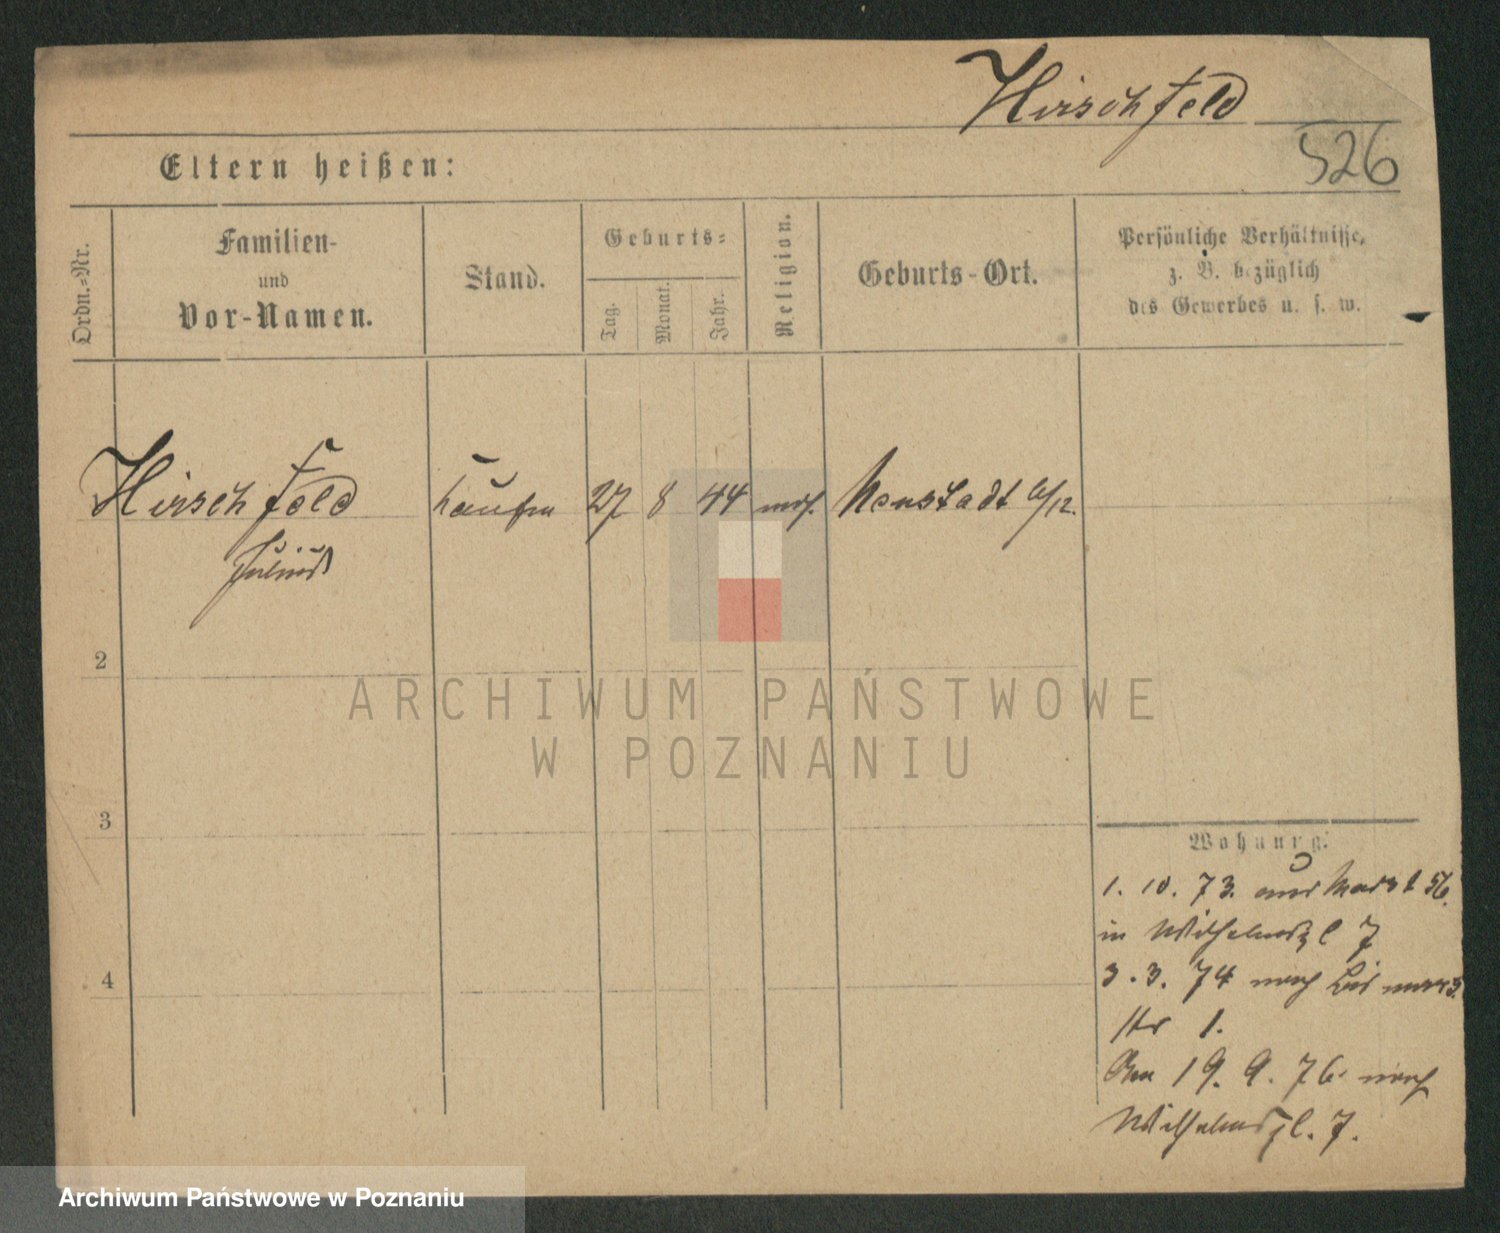 Hirschfeld
526
Eltern heißen:
Ordn.-Nr.
Familien-
und
Vor-Namen.
Stand.
Geburts-
Tag.
Monat.
Jahr.
Religion.
Geburts-Ort.
Persönliche Verhältnisse,
z. B. bezüglich
des Gewerbes u. s. w.
Hirschfeld
Julius
Kaufm
27 8 44 mos. Neustadt a/W.
2
3
4
Wohnung:
1. 10. 73. aus Markt 56.
in Wilhelmspl 7
3. 3. 74 nach Bismarck
str 1.
Am 19. 9. 76 nach
Wilhelmspl. 7.
ARCHIWUM PAŃSTWOWE
W POZNANIU
Archiwum Państwowe w Poznaniu